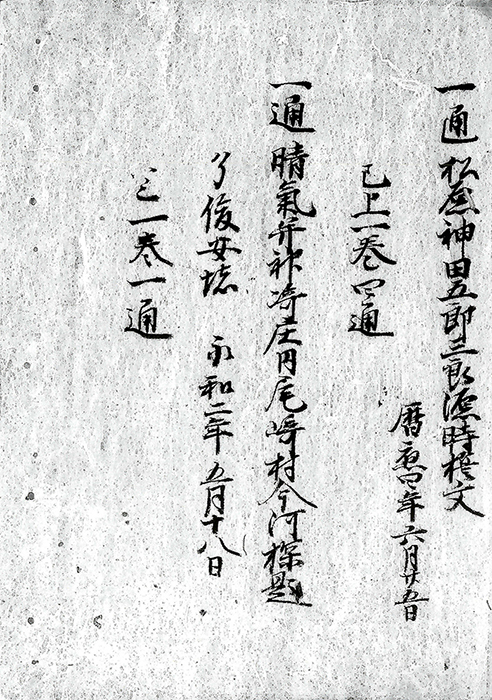 一通 松原神田五郎三郎源時 文
暦應四年六月廿五日
已上一巻四通
一通 晴氣并神崎庄内尾崎村今河探題
了俊安堵 永和二年五月十八日
已上一巻一通